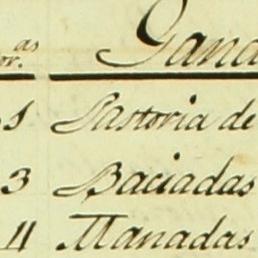 or.as Gana
1 Pastoria de
3 Baciadas
4 Manadas